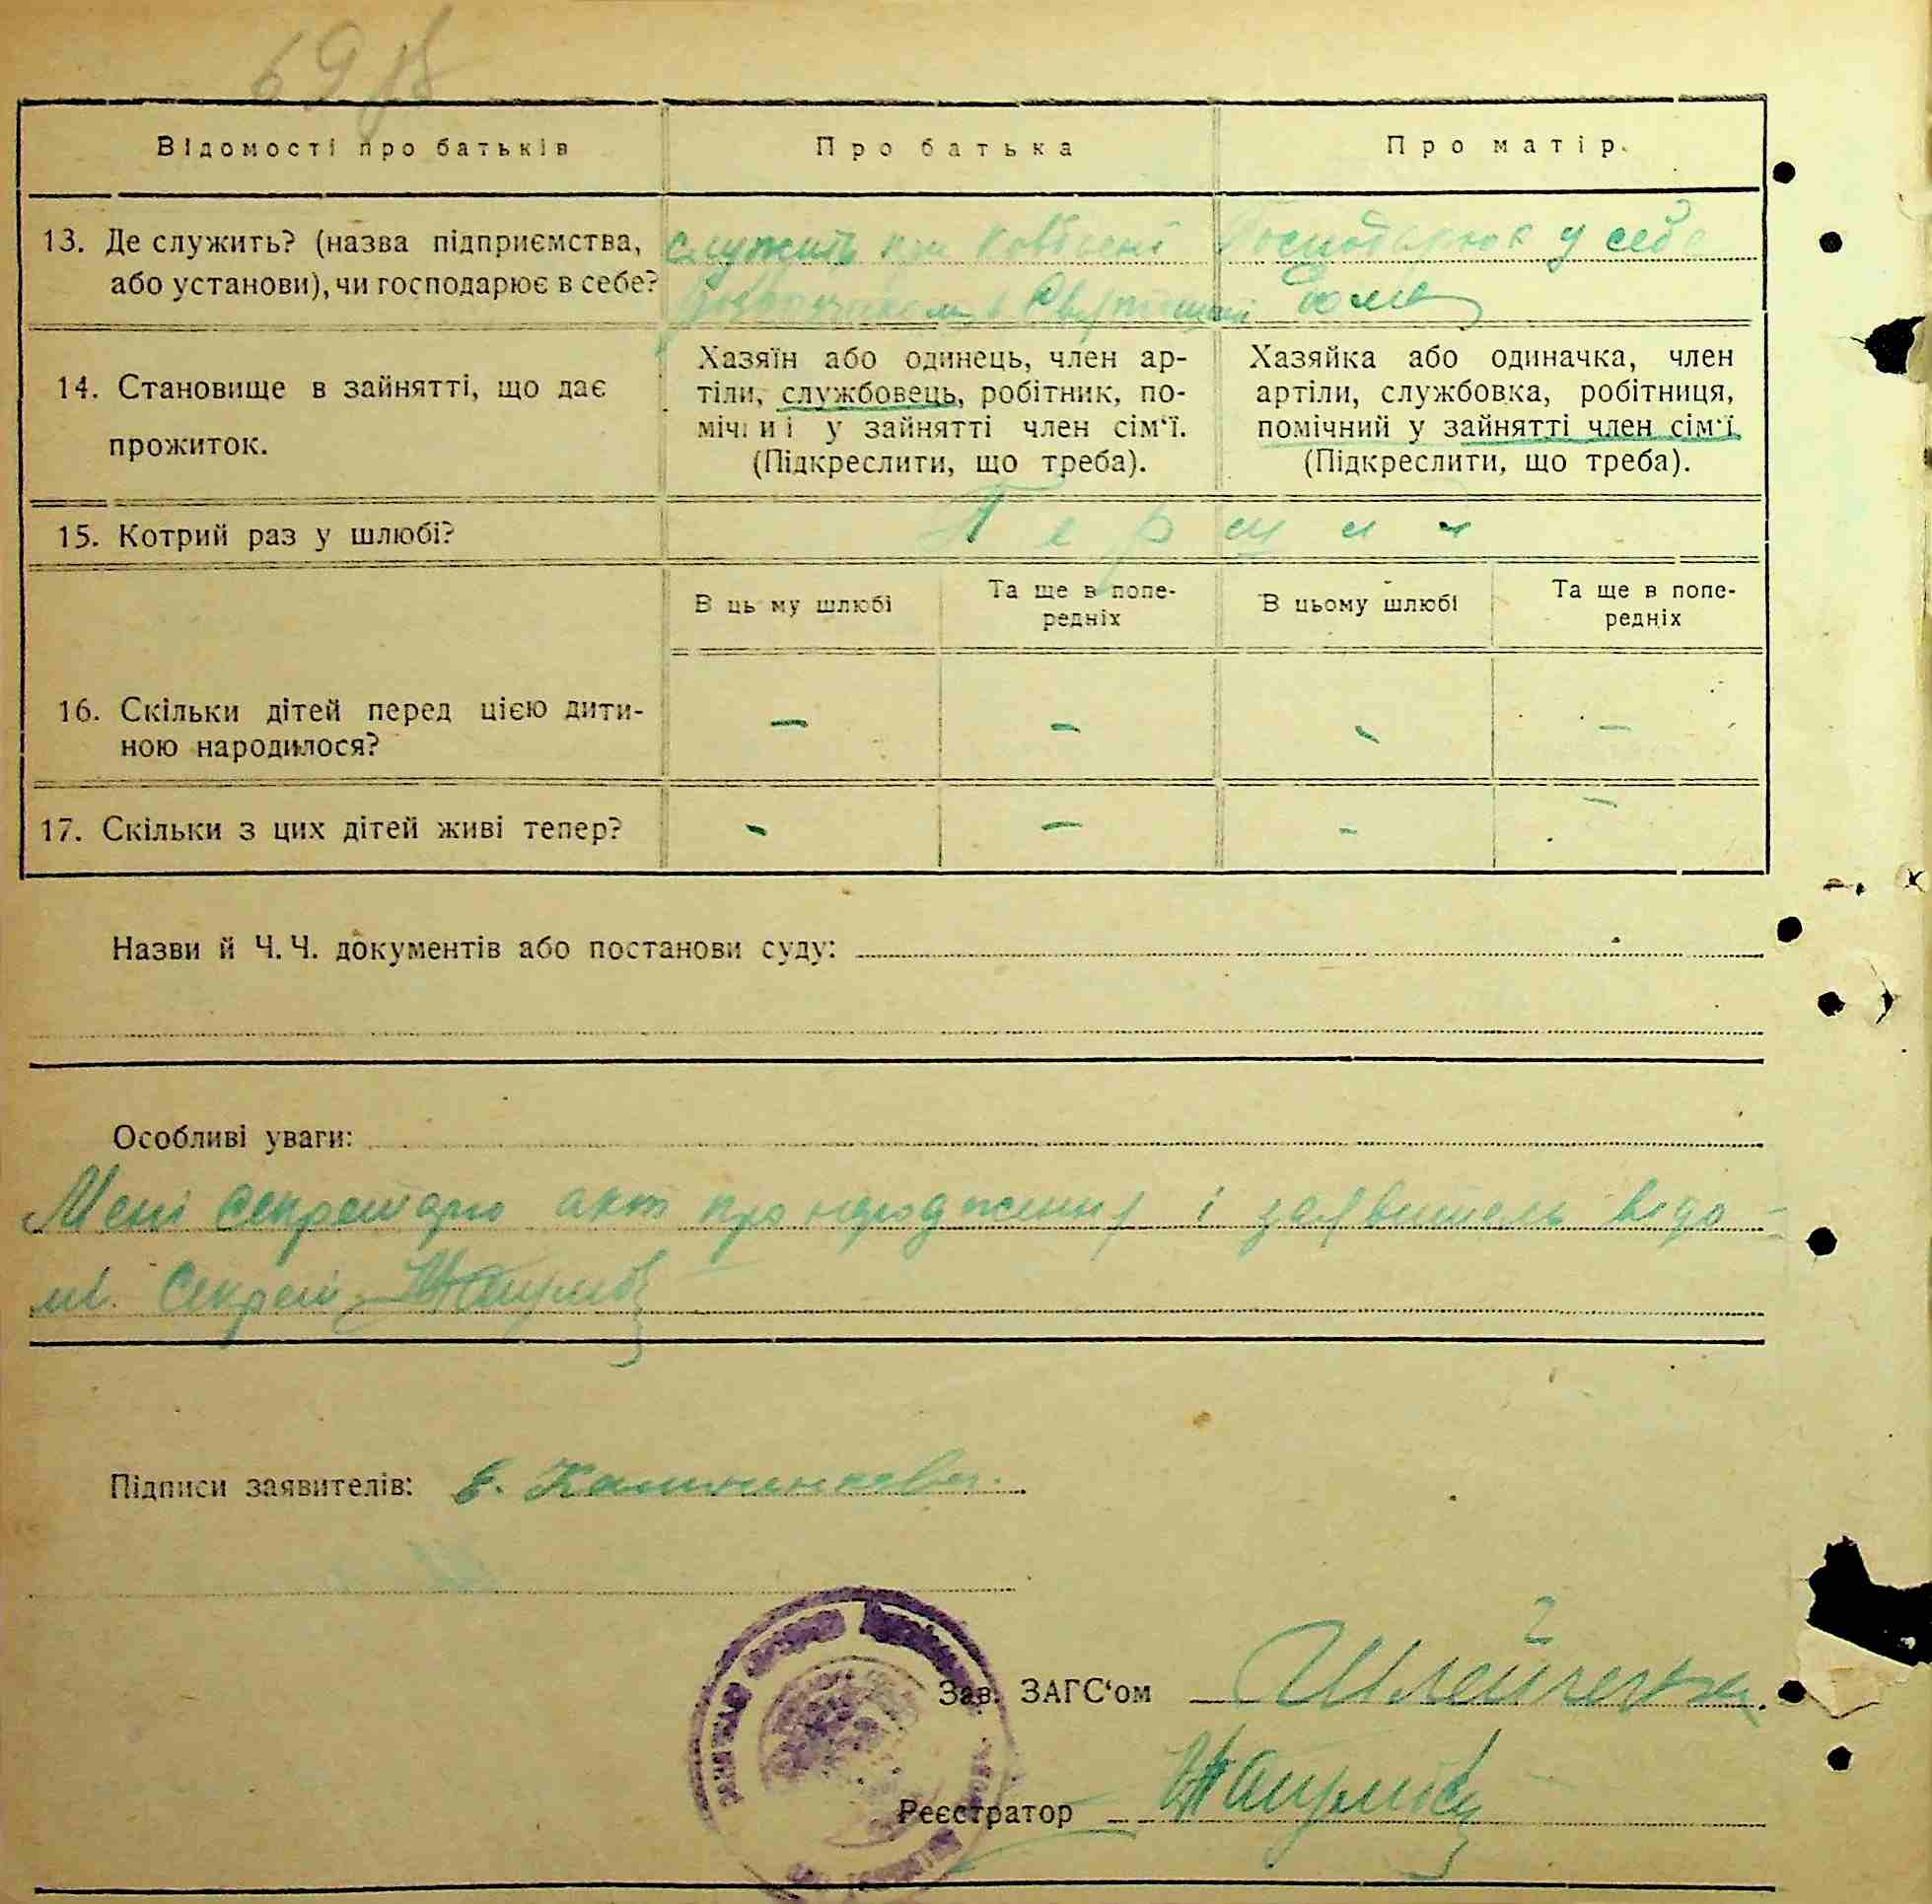 69
Відомості про батьків
Про батька
Про матір.
13. Де служить? (назва підприємства,
або установи), чи господарює в себе?
служить при
Господарює у себе
Хазяїн або одинець, член ар-
тіли, службовець, робітник, по-
мічниі у зайнятті член сім‘ї.
(Підкреслити, що треба).
Хазяйка або одиначка, член
артіли, службовка, робітниця,
помічний у зайнятті член сім‘ї
(Підкреслити, що треба).
14. Становище в зайнятті, що дає
прожиток.
15. Котрий раз у шлюбі?
Перший
В цьму шлюбі
Та ще в попе-
редніх
В цьому шлюбі
Та ще в попе-
редніх
16. Скільки дітей перед цією дити-
ною народилося?
– – – –
17. Скільки з цих дітей живі тепер?
– – – –
Назви й Ч. Ч. документів або постанови суду:
Особливі уваги:
Мені секретарю акт про народження і заявитель відо-
мі. Секрет
Підписи заявителів:
Зав. ЗАГС‘ом
Реєстратор